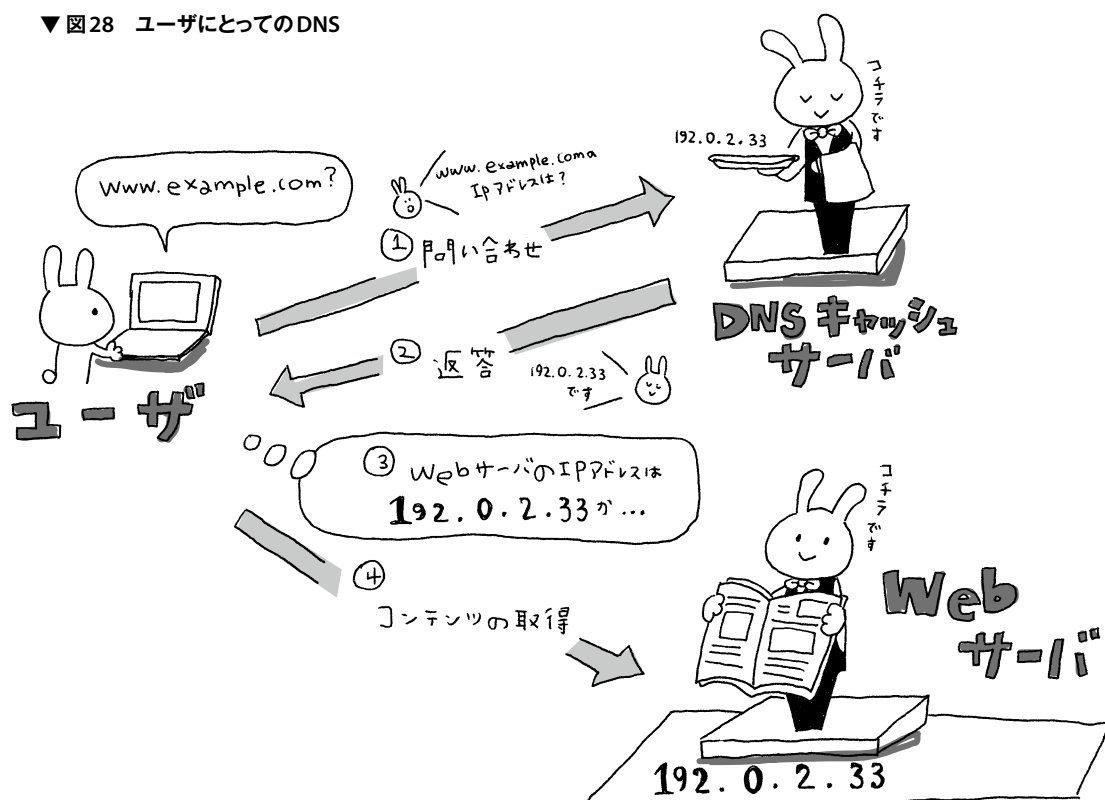 ▼ 図28　ユーザにとってのDNS
www.example.com?
www.example.comの
IPアドレスは？
① 問い合わせ
192.0.2.33
コチラです
DNS キャッシュ
サーバ
② 返答
192.0.2.33
です
ユーザ
③ WebサーバのIPアドレスは
192.0.2.33か...
④
コンテンツの取得
コチラです
Web
サーバ
192.0.2.33